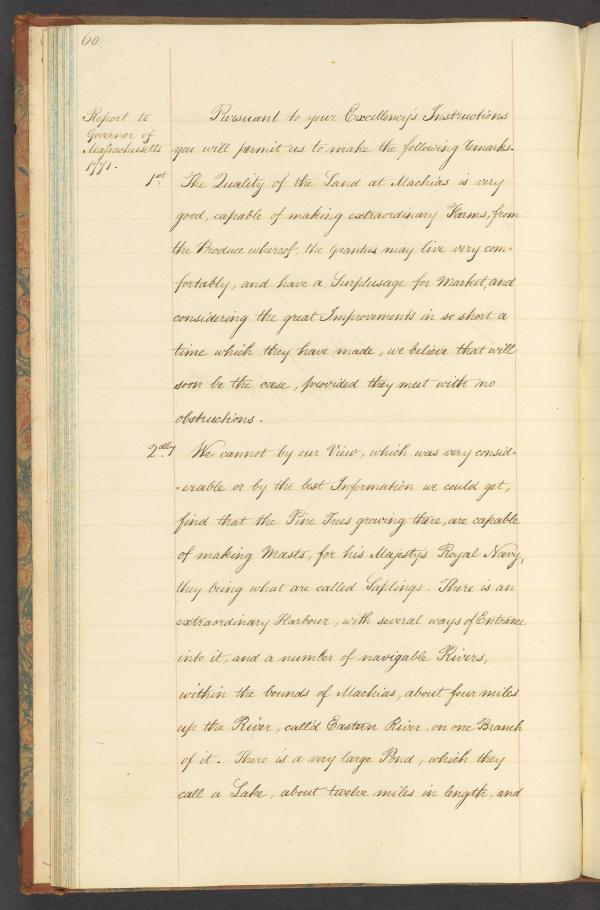 60
Report to
Governor of
Massachusetts
1771.
Pursuant to your Excellency's Instructions
you will permit us to make the following remarks.
1st. The Quality of the Land at Machias is very
good, capable of making extraordinary Farms, from
the Produce whereof, the Grantees may live very com-
fortably, and have a Surplusage for Market, and
considering the great Improvements in so short a
time which they have made, we believe that will
soon be the case, provided they meet with no
obstructions.
2dlly We cannot by our View, which was very consid-
-erable or by the best Information we could get,
find that the Pine Trees growing there, are capable
of making Masts, for his Majesty's Royal Navy,
they being what are called Saplings. There is an
extraordinary Harbour, with several ways of Entrance
into it, and a number of navigable Rivers,
within the bounds of Machias, about four miles
up the River, call'd Eastern River, on one Branch
of it. There is a very large Pond, which they
call a Lake, about twelve miles in length, and